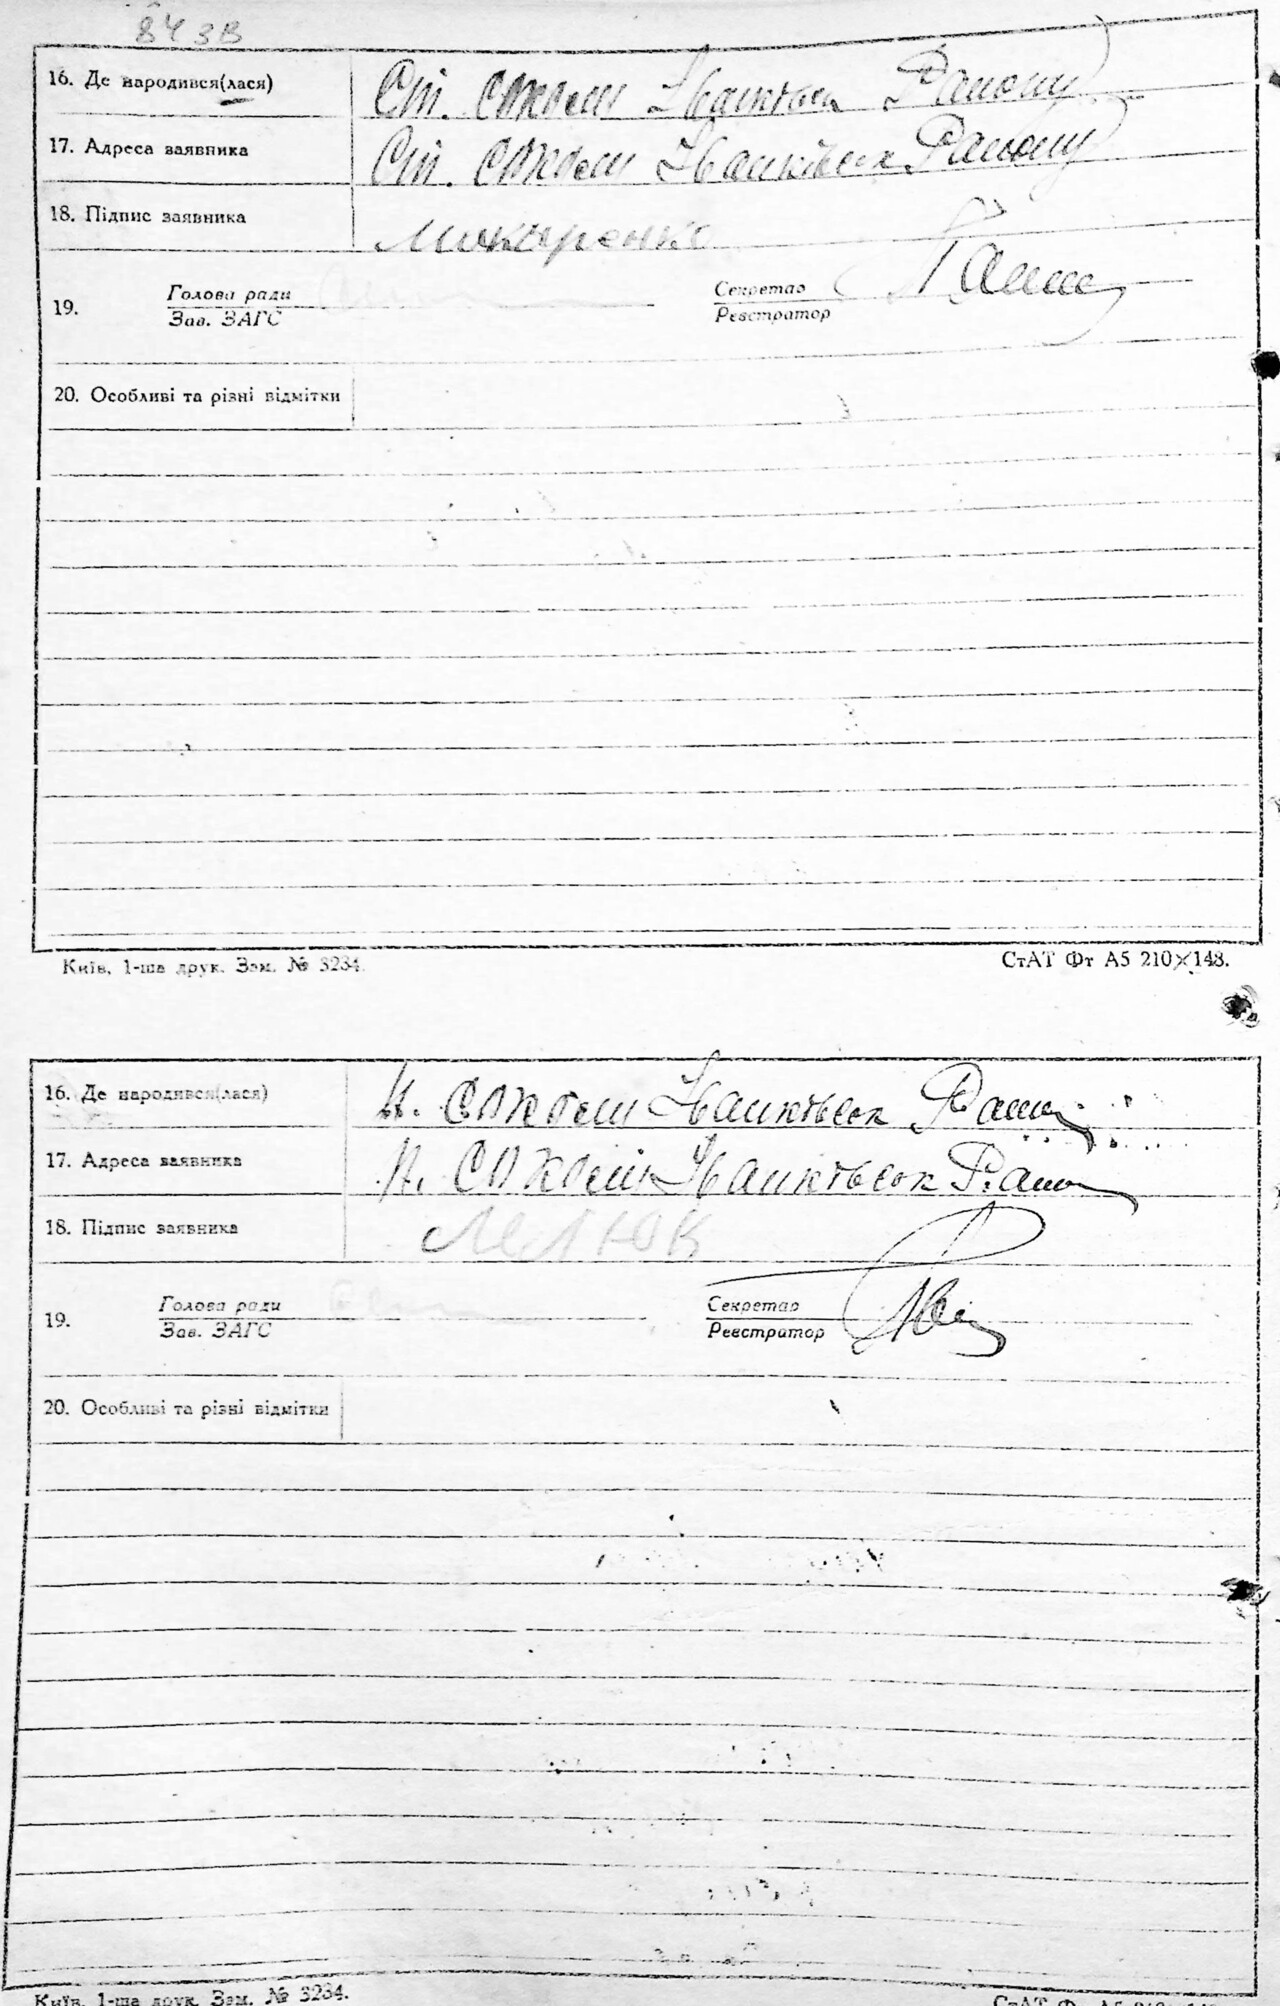 84 зв
16. Де народився(лася) Ст. Соколи Іванков Району
17. Адреса заявника Ст. Соколи Іванківськ Району
18. Підпис заявника Макаренко
19. Голова ради Секретар
Зав. ЗАГС Реєстратор
20. Особливі та різні відмітки
Київ, 1-ша друк. Зам. № 3234. СтАТ Фт А5 210×148.
16. Де народився(лася) Н. Соколи Іванківськ
17. Адреса заявника Н. Соколи Іванківськ
18. Підпис заявника Мелюк
19. Голова ради Секретар
Зав. ЗАГС Реєстратор
20. Особливі та різні відмітки
Київ, 1-ша друк. Зам. № 3234. СтАТ Фт А5